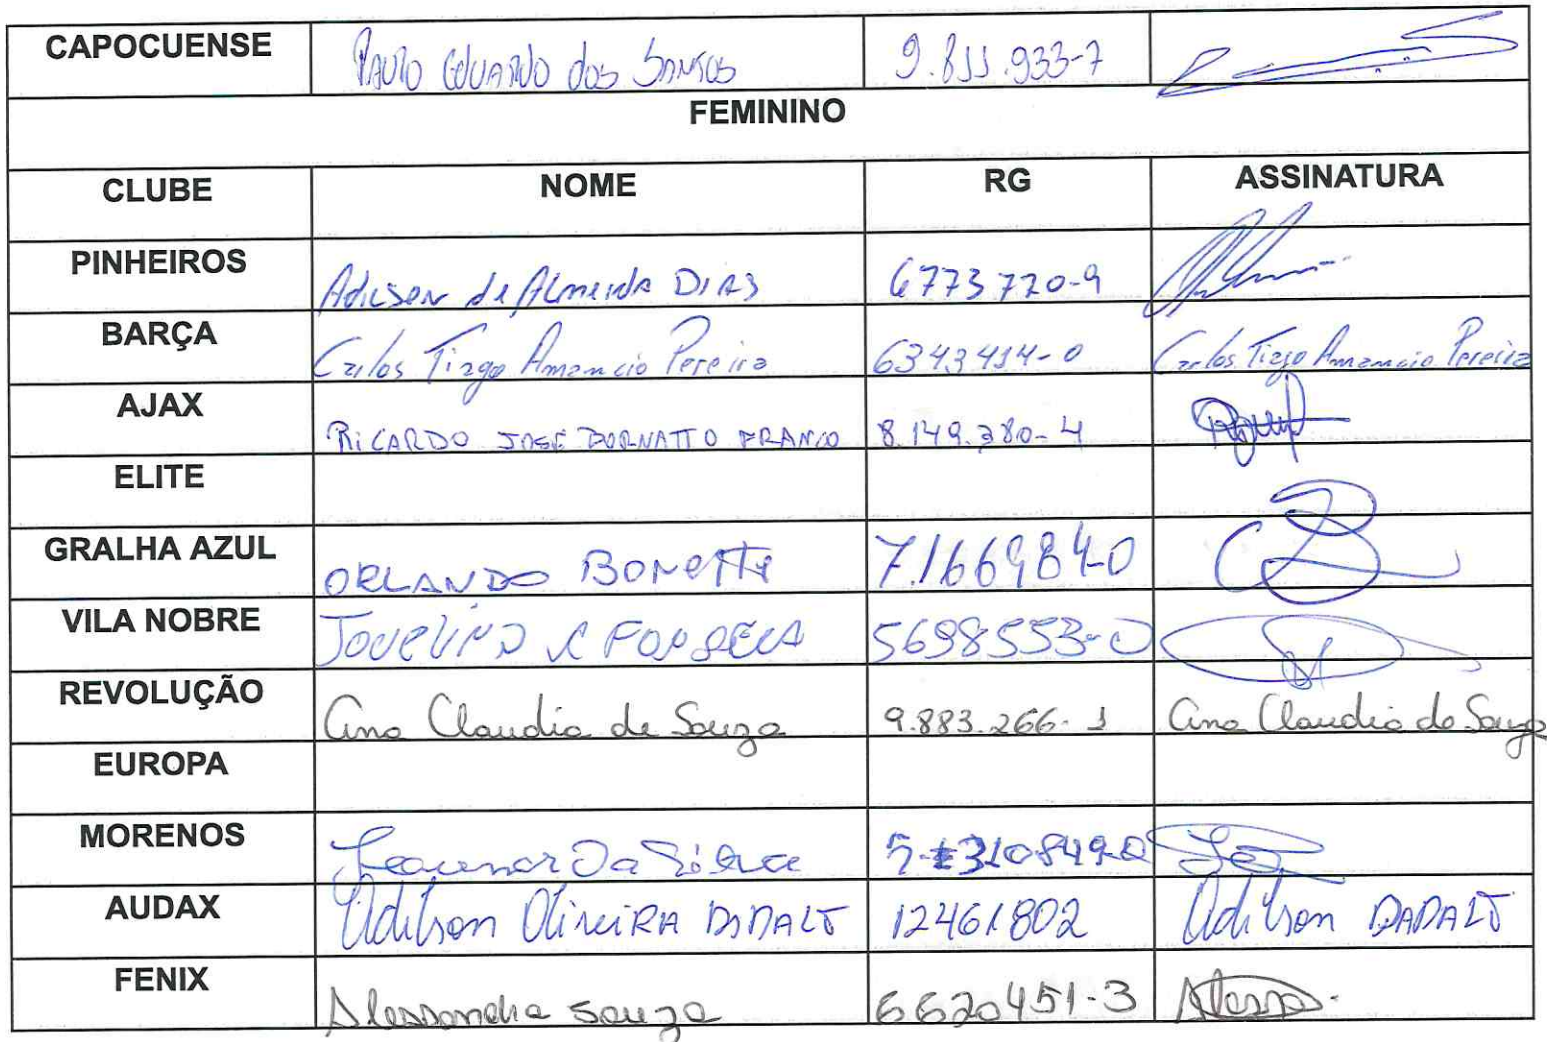 CAPOCUENSE PAULO EDUARDO dos SANTOS 9.811.933-7
FEMININO
CLUBE NOME RG ASSINATURA
PINHEIROS Adilson de Almeida DIAS 6773770-9
BARÇA Carlos Tiago Amancio Pereira 6343414-0 Carlos Tiago Amancio Pereira
AJAX RICARDO JOSÉ FRANCO 8.149.380-4
ELITE
GRALHA AZUL ORLANDO BONETTI 7.166984-0
VILA NOBRE FONSECA 5698553-0
REVOLUÇÃO Ana Claudia de Souza 9.883.266-1 Ana Claudia de Souza
EUROPA
MORENOS Da Silva
AUDAX Adilson OliveiRA DADALT 12461802 Adilson DADALT
FENIX Alessandra Souza 6620451-3